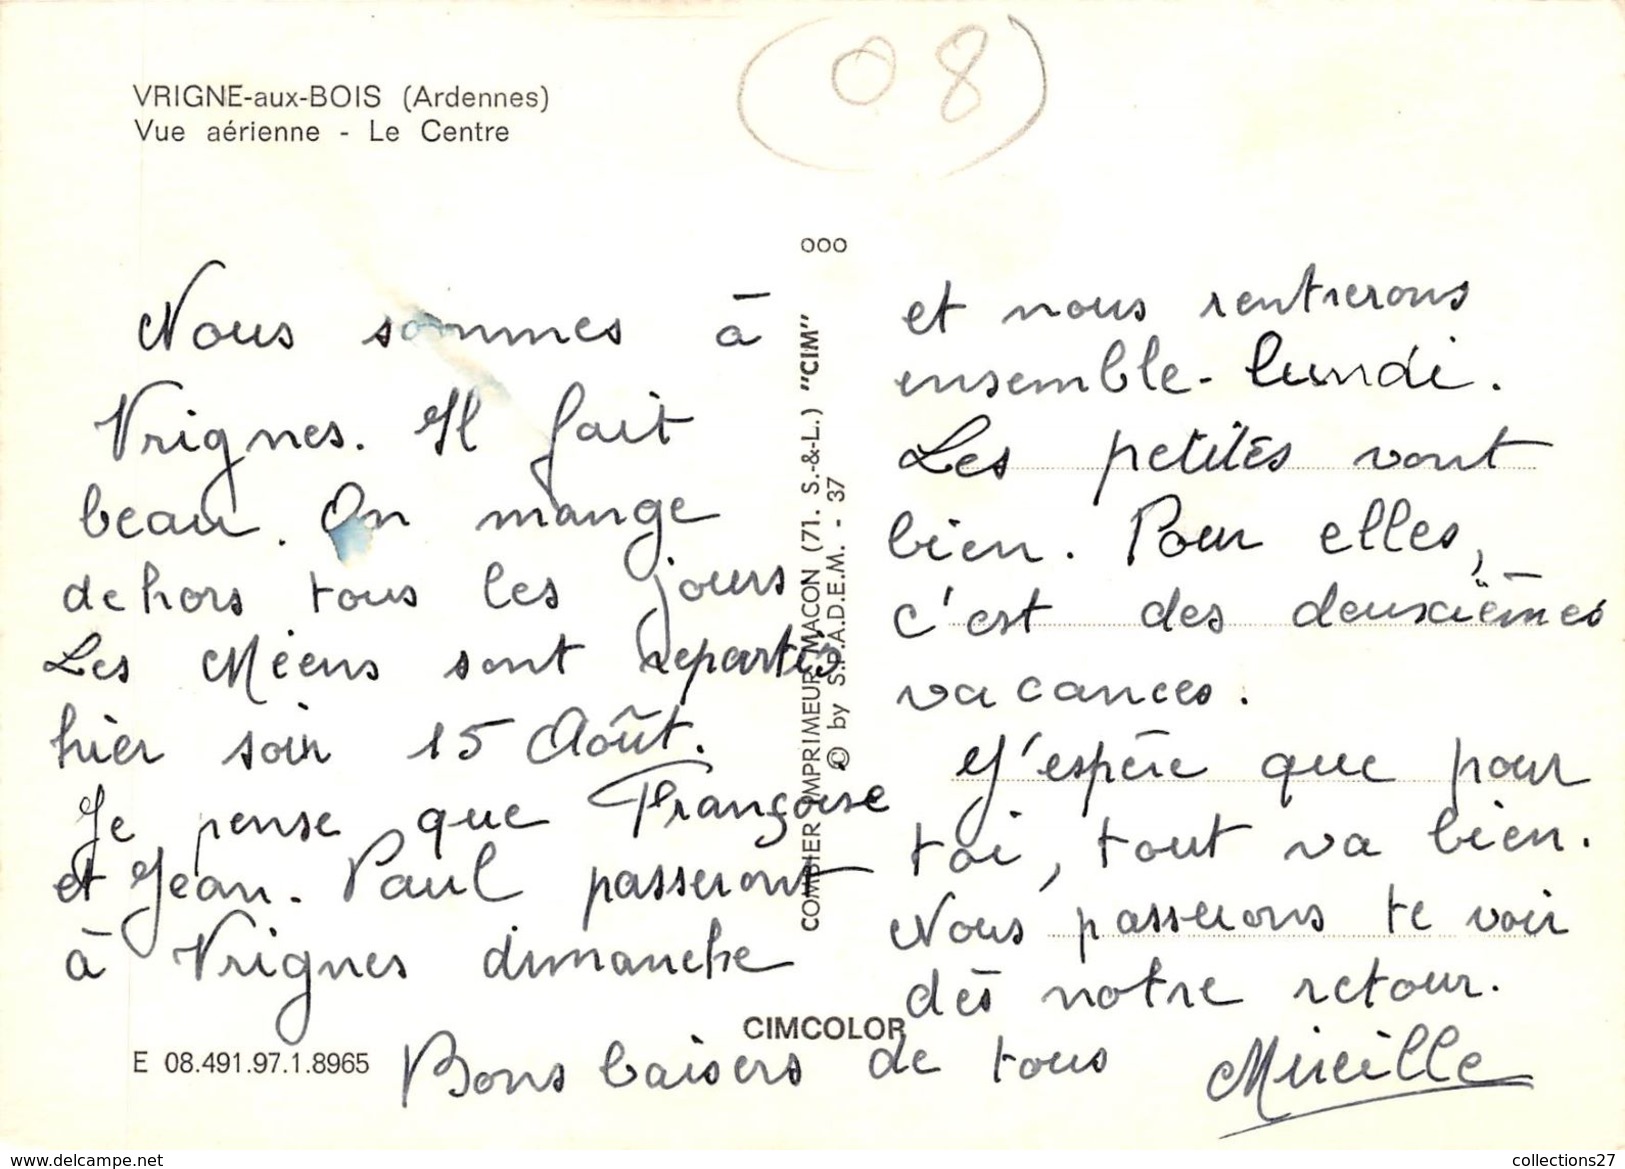 (08)
VRIGNE-aux-BOIS (Ardennes)
Vue aérienne - Le Centre
Nous sommes à
Vrignes. Il fait
beau. On mange
dehors tous les jours
Les Méens sont repartis
hier soir 15 Août.
Je pense que Françoise
et Jean-Paul passeront
à Vrignes dimanche
ooo
COMBIER IMPRIMEUR MACON (71. S.-&-L.) "CIM"
© by S.P.A.D.E.M. - 37
et nous rentrerons
ensemble - lundi.
Les petites vont
bien. Pour elles,
c'est des deuxièmes
vacances.
J'espère que pour
toi, tout va bien.
Nous passerons te voir
dès notre retour.
CIMCOLOR
E 08.491.97.1.8965
Bons baisers de tous Mireille
www.delcampe.net
collections27